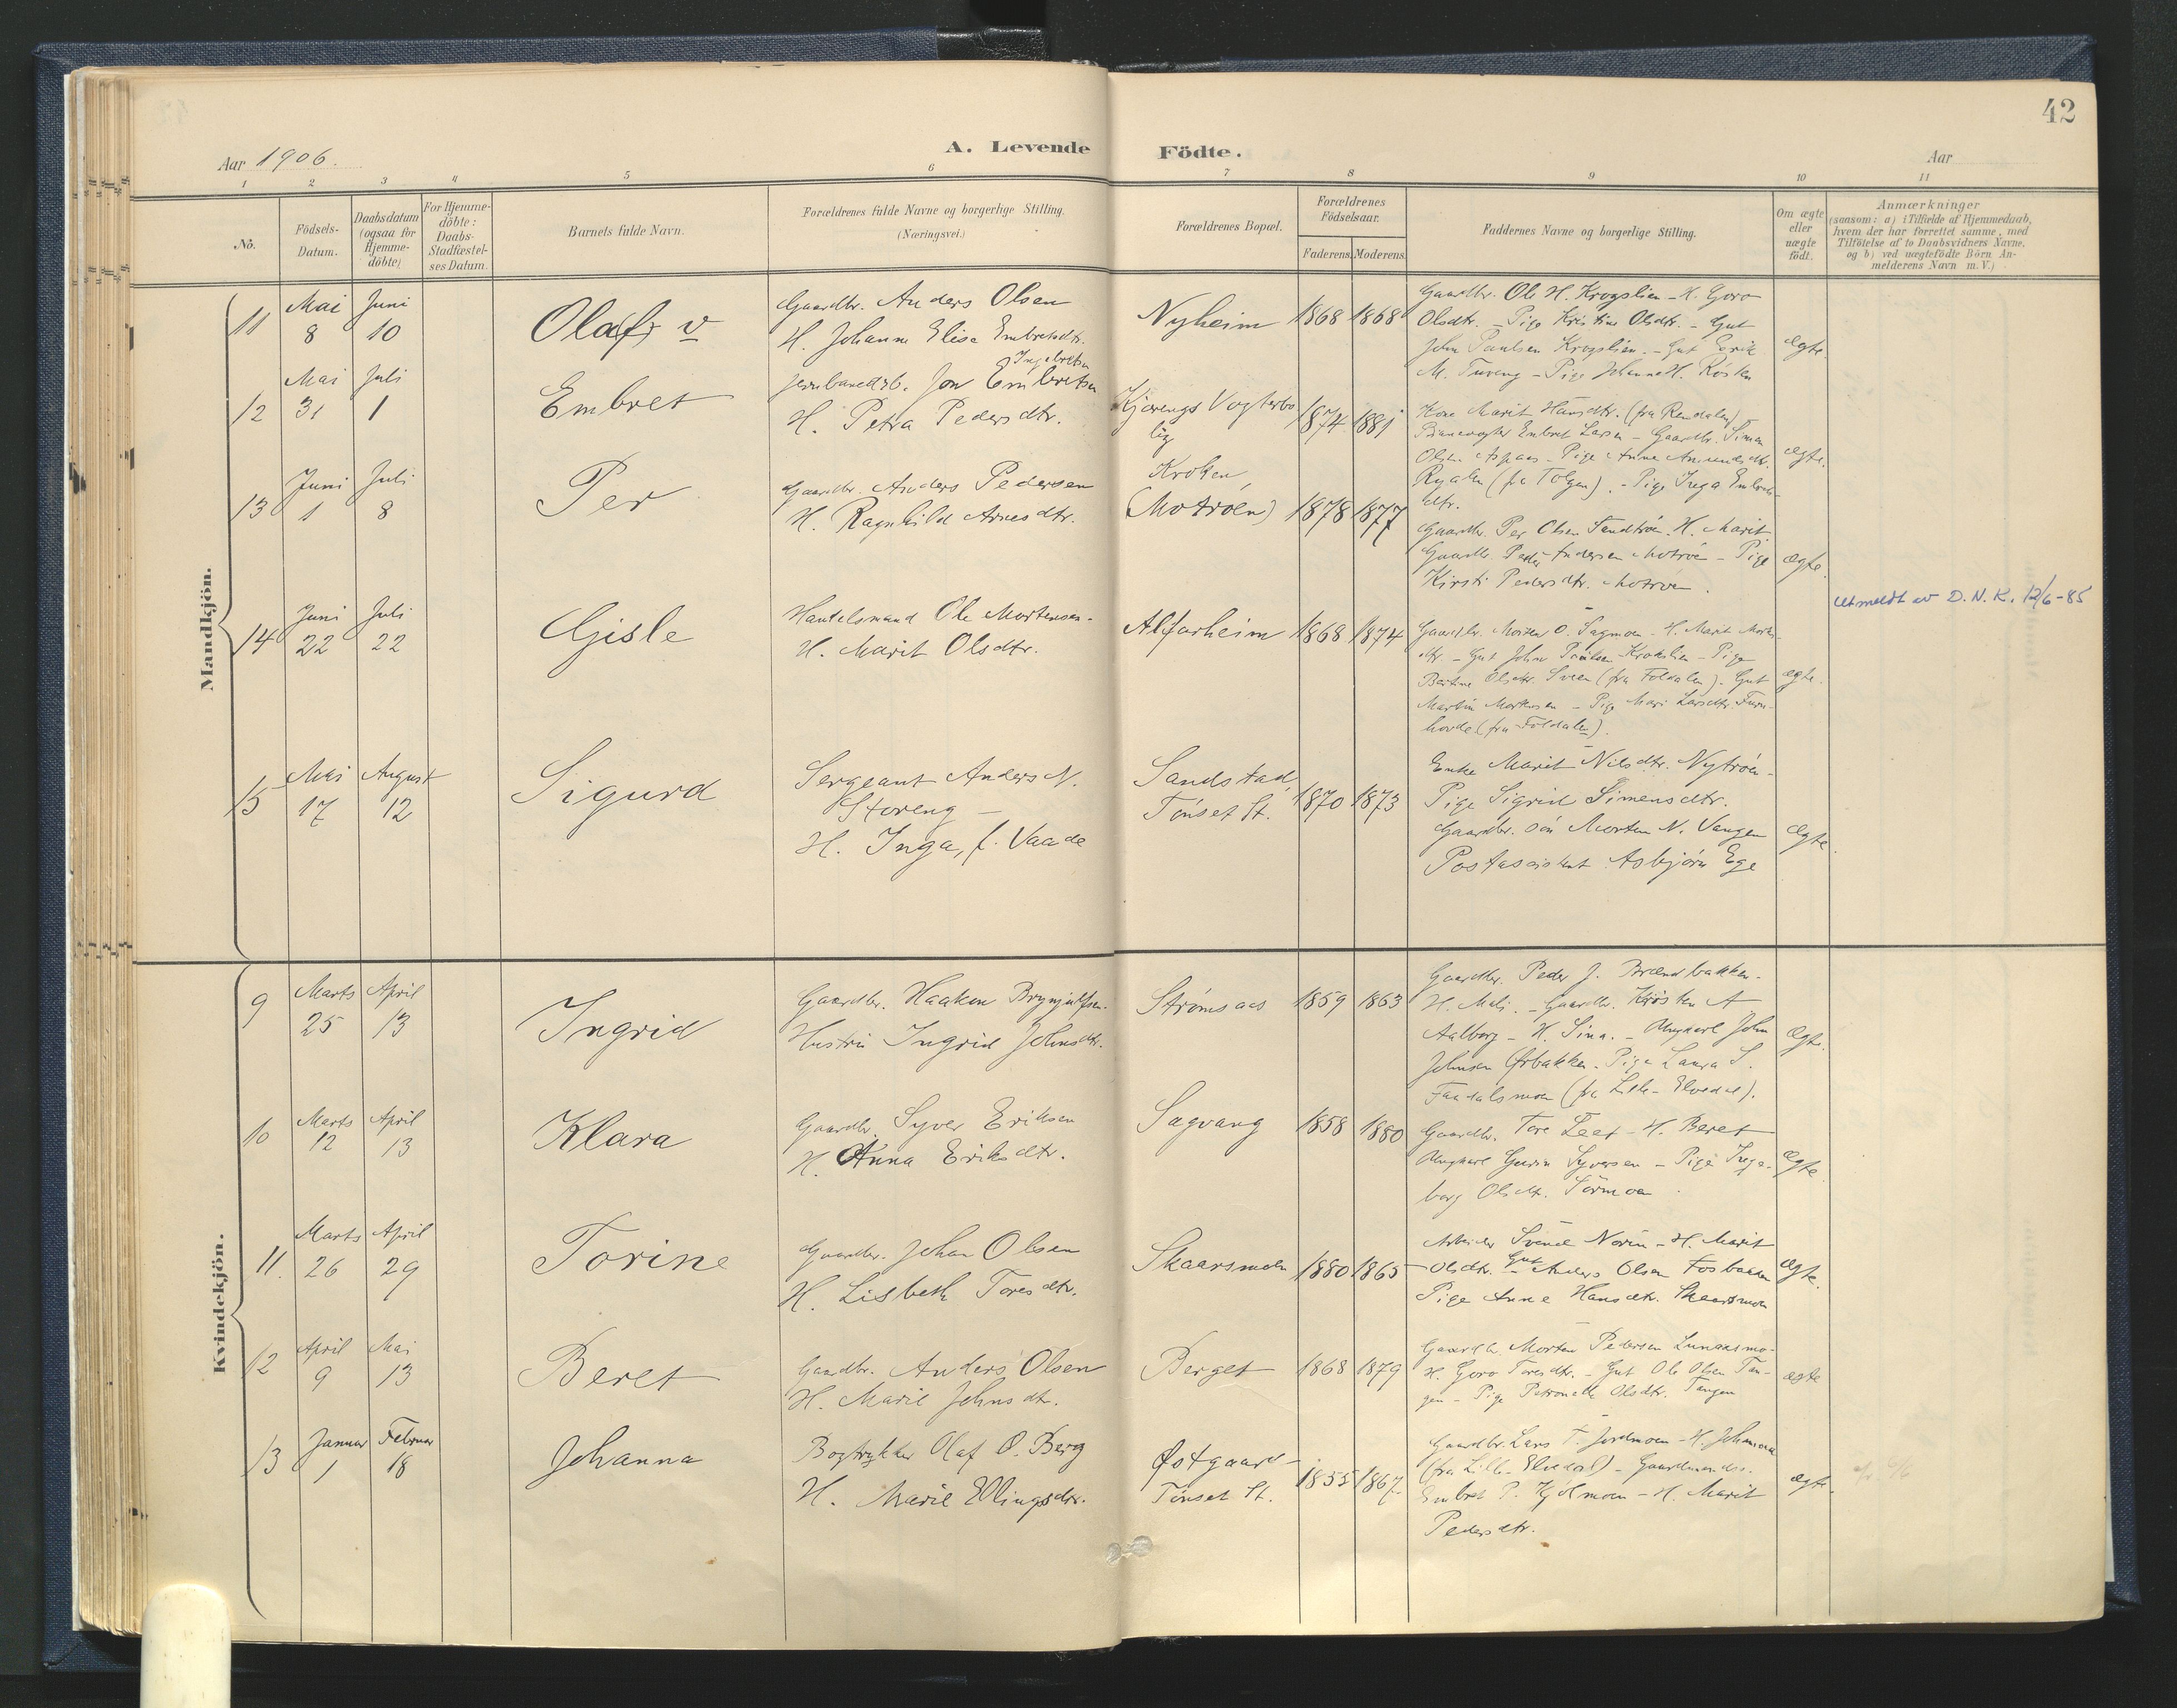 42
Aar 1906.
A. Levende Födte.
Aar
1 2 3 4 5 6 7 8 9 10 11
No.
Födsels-
Datum.
Daabsdatum
(ogsaa for
Hjemme-
döbte)
For Hjemme-
döbte:
Daabs-
Stadfæstel-
ses Datum.
Barnets fulde Navn.
Forældrenes fulde Navne og borgerlige Stilling.
(Næringsvei.)
Forældrenes Bopæl.
Forældrenes
Födselsaar.
Faderens. Moderens.
Faddernes Navne og borgerlige Stilling.
Om ægte
eller
uægte
födt.
Anmærkninger
(saasom: a) i Tilfælde af Hjemmedaab,
hvem der har forrettet samme, med
Tilföielse af to Daabsvidners Navne,
og b) ved uægtefödte Börn An-
melderens Navn m.V.)
Mandkjön.
11
Mai
8
Juni
10
Olaf v
Gaardbr. Anders Olsen
H. Johanne Elise Embretsdtr.
Nyheim
1868 1868
Gaardbr. Ole H. Krogslien - H. Goro
Olsdtr. - Pige Kristine Olsdtr. - Gut
John Paulsen Krogslien. - Gut Erik
M. Tuveng - Pige Johanne H. Rösten
ægte.
12
Mai
31
Juli
1
Embret
Ingebretsen
Jernbanearb. Jon Embretsen
H. Petra Pedersdtr.
Kjærengs Vogterbo
lig
1874 1881
Kone Marit Hansdtr. (fra Rendalen)
Banevogter Embret Larsen - Gaardbr. Simen
Olsen Aspaas - Pige Anne Amundsdtr.
(fra Tolgen). - Pige Inga Embrets-
dtr.
ægte.
13
Juni
1
Juli
8
Per
Gaardbr. Anders Pedersen
H. Ragnhild Arnesdtr.
Kroken,
(Motröen)
1878 1877
Gaardbr. Per Olsen Sandtröen. H. Marit
Gaardbr. Peder Andersen Motröen - Pige
Kirsti Pedersdtr. Motröen.
ægte.
14
Juni
22
Juli
22
Gisle
Handelsmand Ole Mortensen -
H. Marit Olsdtr.
Alfarheim
1868 1874
Gaardbr. Morten O. Sagmoen - H. Marit Mortens-
dtr. - Gut John Paulsen Krokslien - Pige
Bertine Olsdtr. Sveen (fra Foldalen) - Gut
Martin Mortensen - Pige Mari Larsdtr. Furu-
hovde (fra Foldalen).
ægte.
Utmeldt av D.N.K. 12/6-85
15
Mai
17
August
12
Sigurd
Sergeant Anders N.
Storeng -
H. Inga, f. Vaade
Sandstad,
Tönset St.
1870 1873
Enke Marit Nilsdtr. Nytröen -
Pige Sigrid Simensdtr.
Gaardbr. sön Morten N. Vangen
Postassistent Asbjörn Ege
ægte.
Kvindekjön.
9
Marts
25
April
13
Ingrid
Gaardbr. Haaken Brynjulfsen.
Hustru Ingrid Johnsdtr.
Strømsaas
1859 1863
Gaardbr. Peder J. Brændbakken -
H. Mali. - Gaardbr. Kristen A
Aalborg - H. Sina. - Ungkarl John
Johnsen Ørbakken - Pige Laura S.
(fra Lille-Elvedal).
ægte.
10
Marts
12
April
13
Klara
Gaardbr. Syver Eriksen
H. Anna Eriksdtr.
Sagvang
1858 1880
Gaardbr. Tore Leet - H. Beret
Ungkarl Gurin Syversen - Pige Inge-
borg Olsdtr. Törmoen.
ægte.
11.
Marts
26
April
29
Torine
Gaardbr. Johan Olsen
H. Lisbeth Toresdtr.
Skaarsmoen
1880 1865
Arbeider Svend Norin - H. Marit
Olsdtr. - Gut Anders Olsen Fosbakken
Pige Anne Hansdtr. Skaarsmoen
ægte.
12
April
9
Mai
13
Beret
Gaardbr. Anders Olsen
H. Marie Johnsdtr.
Berget
1868 1879
Gaardbr. Morten Pedersen Lunaasmo-
H. Goro Toresdtr. - Gut Ole Olsen Tan-
gen - Pige Petronelle Olsdtr. Tangen
ægte
13
Januar
1
Februar
18
Johanna
Bogtrykker Olaf O. Berg
H. Marie Ellingsdtr.
Østgaard -
Tönset St.
1855 1867
Gaardbr. Lars T. Jordmoen - H. Johanna
(fra Lille-Elvedal) - Gaardmands.
Embret P. Kjölmoen - H. Marit
Pedersdtr.
ægte.